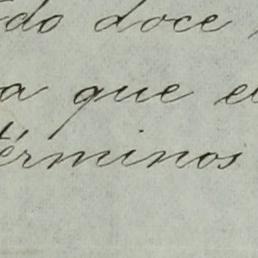 do doce
a que e
términos